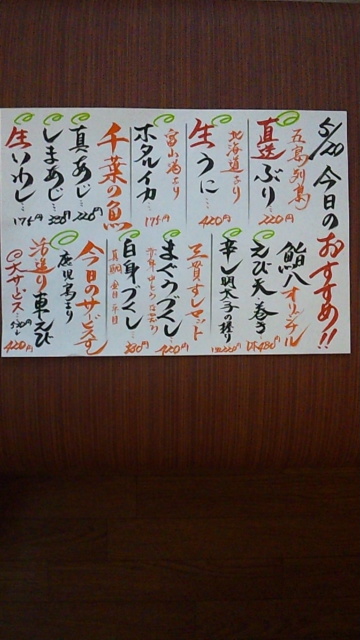 5/20 今日のおすすめ!!
五島列島
直送ぶり… 220円
北海道より
生うに… 420円
富山湾より
ホタルイカ 174円
千葉の魚
真あじ… 220円
しまあじ…
生いわし… 174円
鮨八オリジナル
えび天巻き 1本480円
辛し明太子の握り
三貫すしセット
まぐろづくし… 420円
白身づくし
今日のサービスすし
鹿児島より
活造り車えび
大サービス…
420円